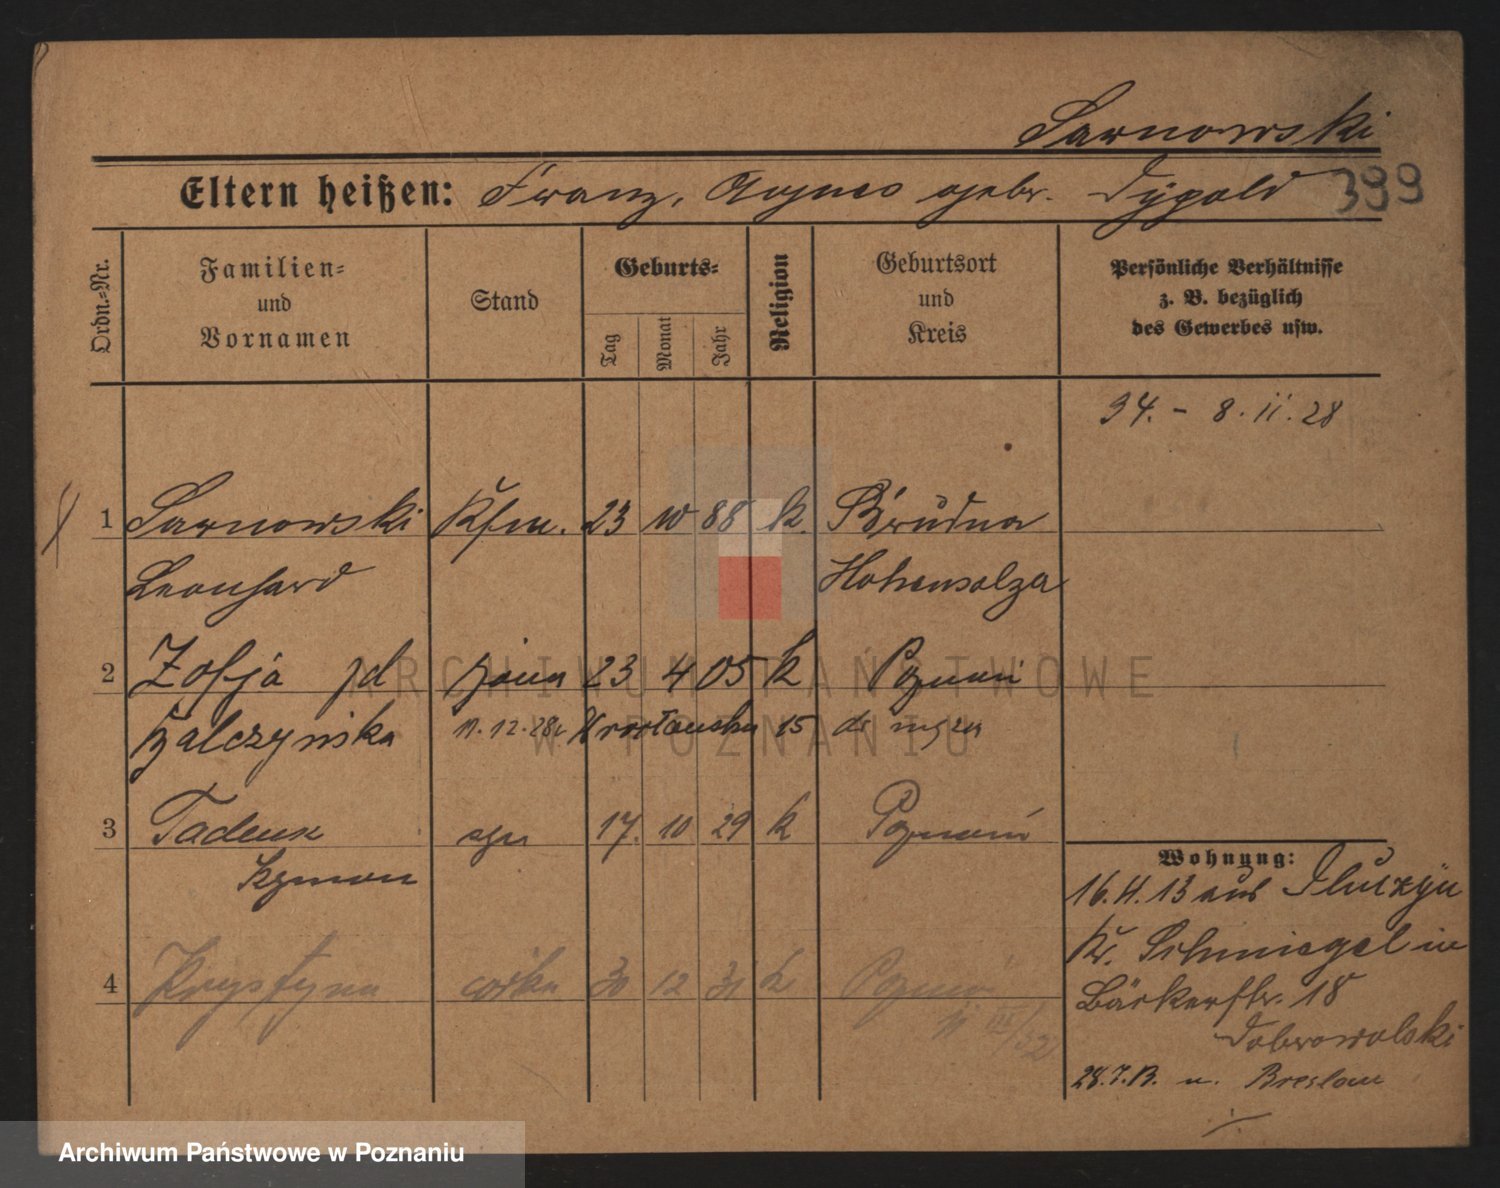 Sarnowski
Eltern heißen: Franz, Agnes gebr. Dygald 399
Ordn.=Nr.
Familien=
und
Vornamen
Stand
Geburts=
Tag
Monat
Jahr
Religion
Geburtsort
und
Kreis
Persönliche Verhältnisse
z. B. bezüglich
des Gewerbes usw.
34. - 8. 11. 28
1 Sarnowski Kfm. 23 10 88 k. Brudna
Leonhard Hohensalza
2 Zofja żona 23 4 05 k Poznań
11.12.28 Wrocławska 15
3 Tadeusz syn 17. 10 29 k Poznań
Szymon
4 Krystyna córka 30 12 31 k Poznań
Wohnung:
16.4.13 aus
Kr. Schmiegel in
Bäckerstr. 18
Dobrowolski
28.7.13. n. Breslau
ARCHIWUM PAŃSTWOWE
W POZNANIU
Archiwum Państwowe w Poznaniu